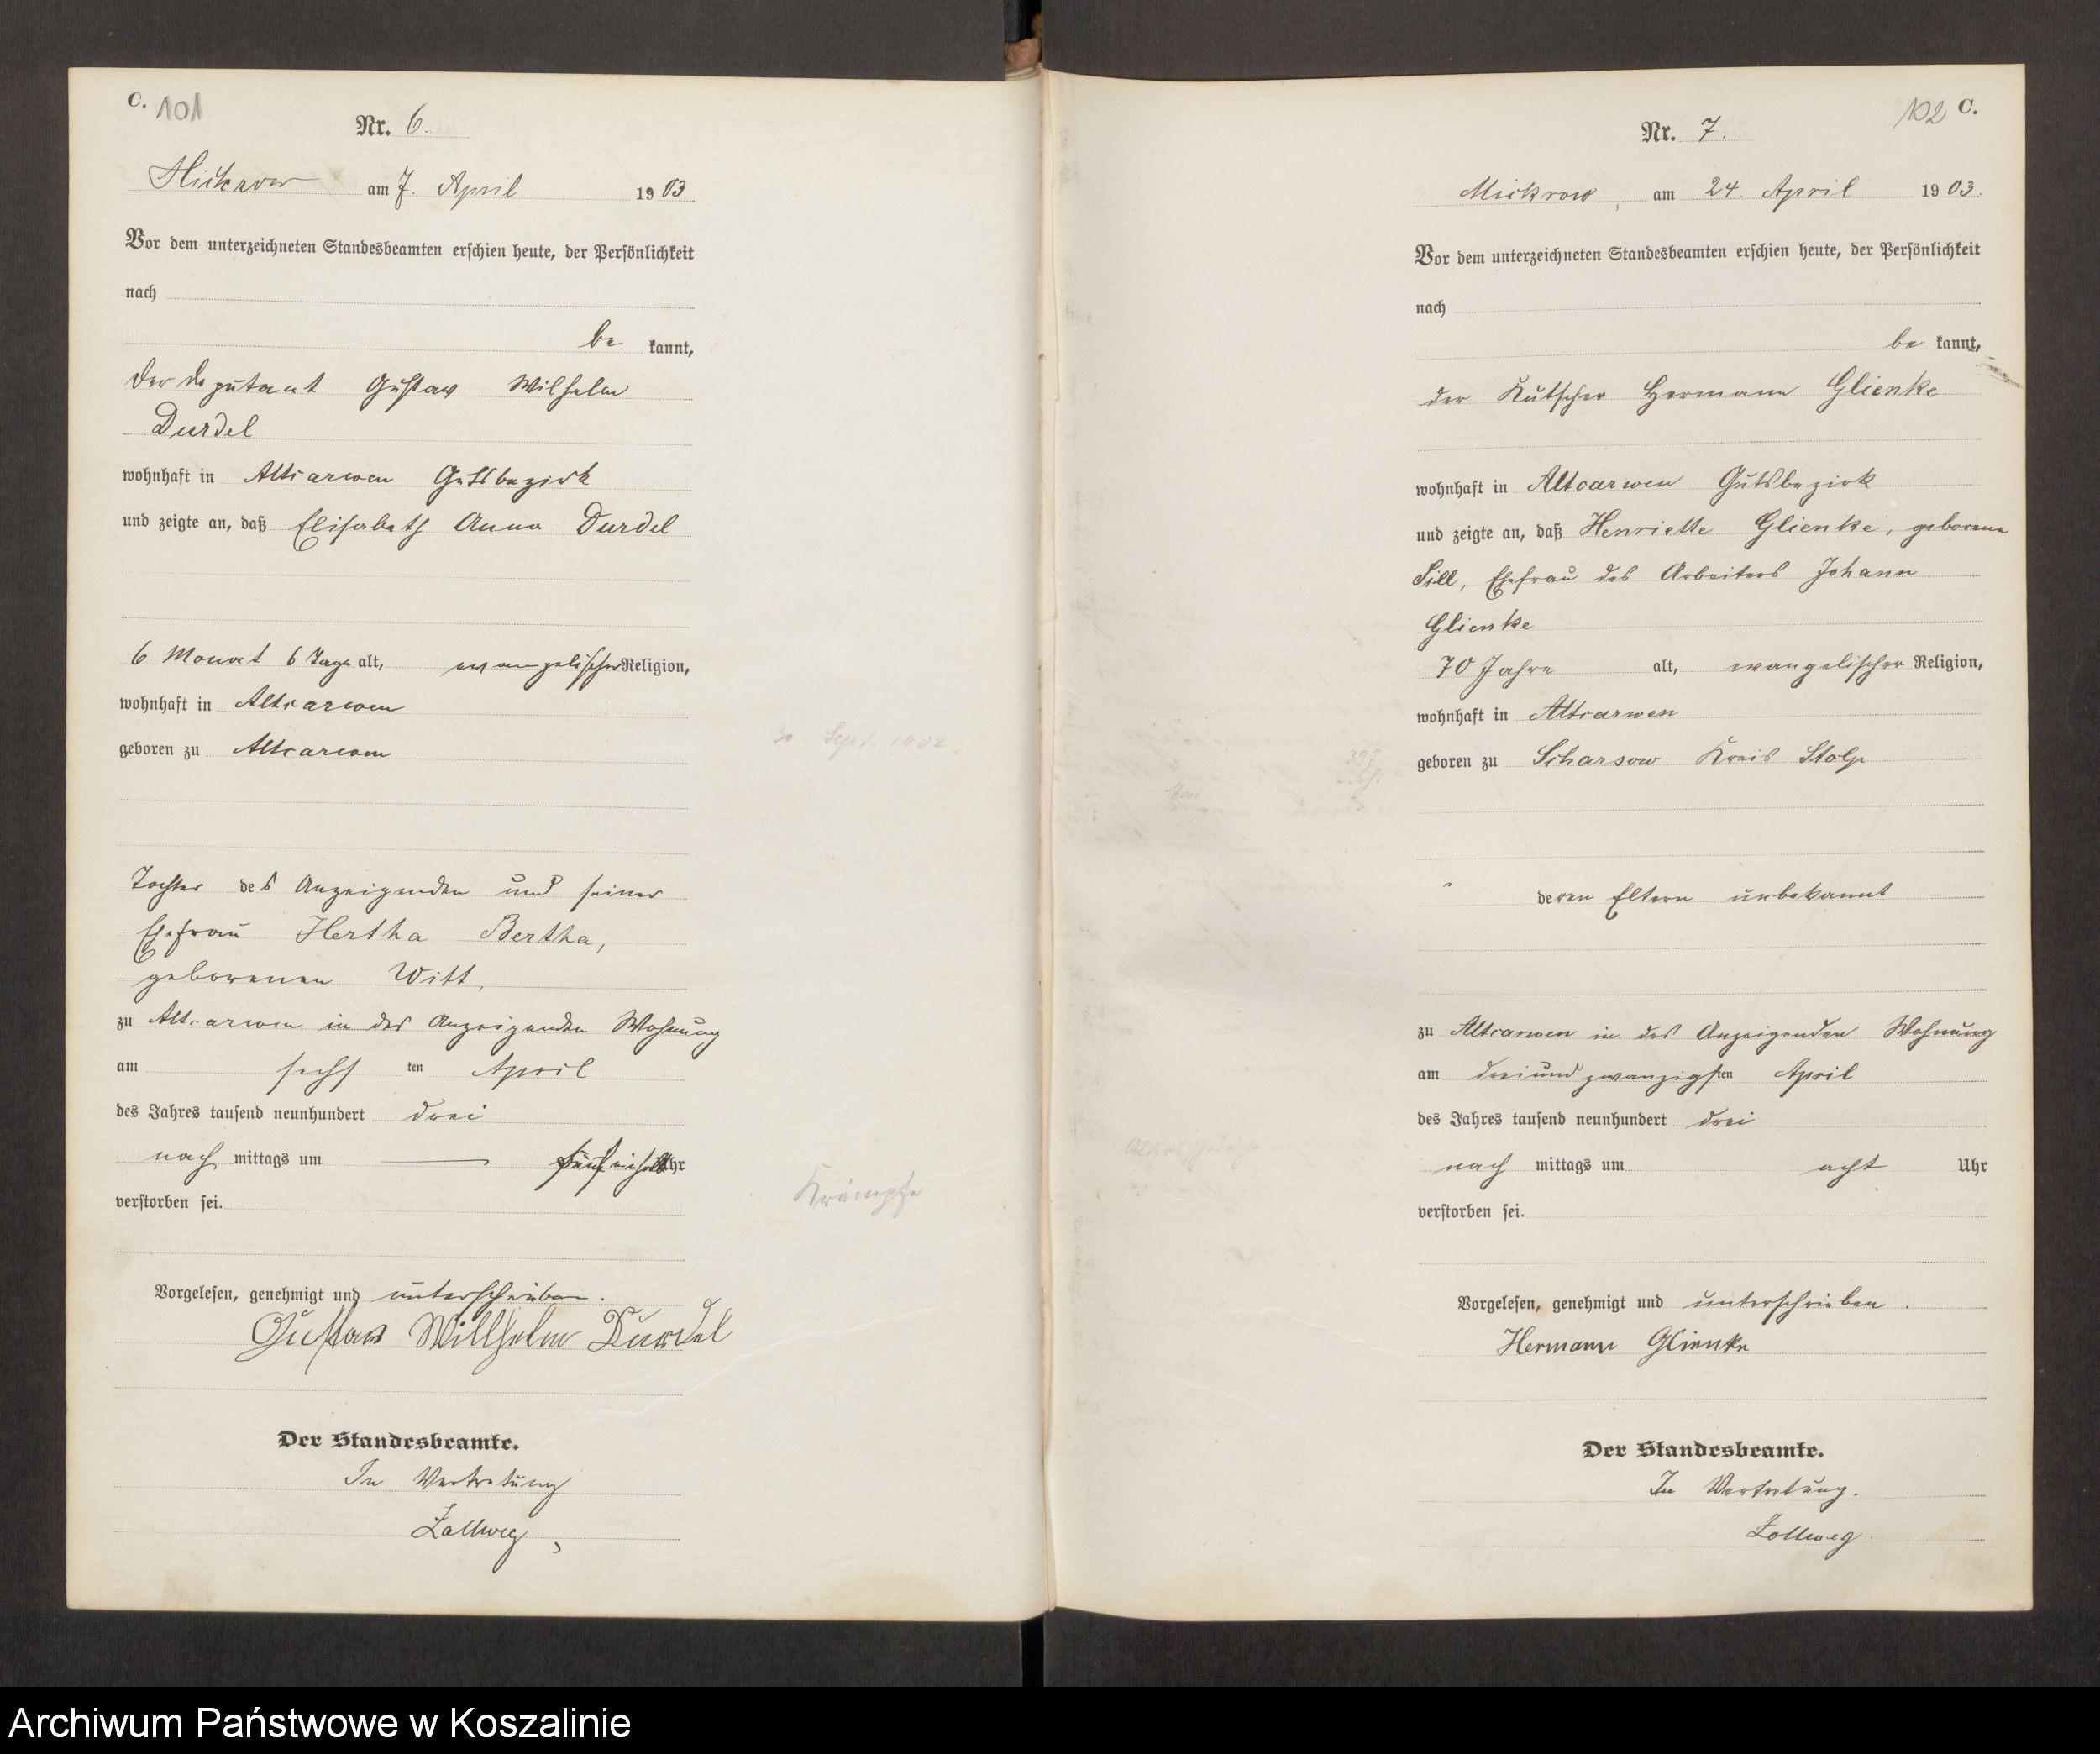 C. 101
Nr. 6.
Mickrow am 7. April 1903
Vor dem unterzeichneten Standesbeamten erschien heute, der Persönlichkeit
nach
be kannt,
der Deputant Gustav Wilhelm
Durdel
wohnhaft in Altcarwen Gutsbezirk
und zeigte an, daß Elisabeth Anna Durdel
6 Monat 6 Tage alt, evangelischer Religion,
wohnhaft in Altcarwen
geboren zu Altcarwen
30. Sept. 1902.
Tochter des Anzeigenden und seiner
Ehefrau Hertha Bertha,
geborenen Witt,
zu Altcarwen in des Anzeigenden Wohnung
am sechsten April
des Jahres tausend neunhundert drei
nach mittags um Uhr
Krämpfe
verstorben sei.
Vorgelesen, genehmigt und unterschrieben.
Gustav Willhelm Durdel
Der Standesbeamte.
In Vertretung
Zollweg
102 C.
Nr. 7.
Mickrow, am 24. April 1903.
Vor dem unterzeichneten Standesbeamten erschien heute, der Persönlichkeit
nach
be kannt,
der Kutscher Hermann Glienke
wohnhaft in Altcarwen Gutsbezirk
und zeigte an, daß Henriette Glienke, geborene
Sill, Ehefrau des Arbeiters Johann
Glienke
70 Jahre alt, evangelischer Religion,
wohnhaft in Altcarwen
geboren zu Scharsow Kreis Stolp
deren Eltern unbekannt
zu Altcarwen in des Anzeigenden Wohnung
am dreiundzwanzigsten April
des Jahres tausend neunhundert drei
nach mittags um acht Uhr
verstorben sei.
Vorgelesen, genehmigt und unterschrieben.
Hermann Glienke
Der Standesbeamte.
In Vertretung.
Zollweg
Archiwum Państwowe w Koszalinie